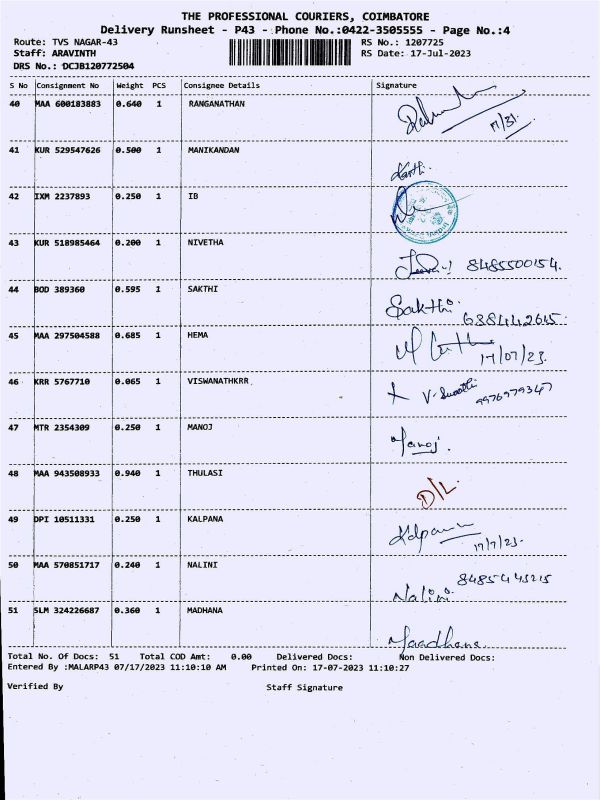 THE PROFESSIONAL COURIERS, COIMBATORE
Delivery Runsheet - P43 - Phone No.:0422-3505555 - Page No.:4
Route: TVS NAGAR-43 RS No.: 1207725
Staff: ARAVINTH RS Date: 17-Jul-2023
DRS No.: DCJB120772504
S No Consignment No Weight PCS Consignee Details Signature
40 MAA 600183883 0.640 1 RANGANATHAN
17/31
41 KUR 529547626 0.500 1 MANIKANDAN
42 IXM 2237893 0.250 1 IB
43 KUR 518985464 0.200 1 NIVETHA
8485500154.
44 BOD 389360 0.595 1 SAKTHI Sakthi
6384442645
45 MAA 297504588 0.685 1 HEMA
17/07/23
46 KRR 5767710 0.065 1 VISWANATHKRR
9976979347
47 MTR 2354309 0.250 1 MANOJ Manoj.
48 MAA 943508933 0.940 1 THULASI D/L
49 DPI 10511331 0.250 1 KALPANA Kalpana
17/7/23.
50 MAA 570851717 0.240 1 NALINI
Nalini
51 SLM 324226687 0.360 1 MADHANA
Maadhana.
Total No. Of Docs: 51 Total COD Amt: 0.00 Delivered Docs: Non Delivered Docs:
Entered By :MALARP43 07/17/2023 11:10:10 AM Printed On: 17-07-2023 11:10:27
Verified By Staff Signature